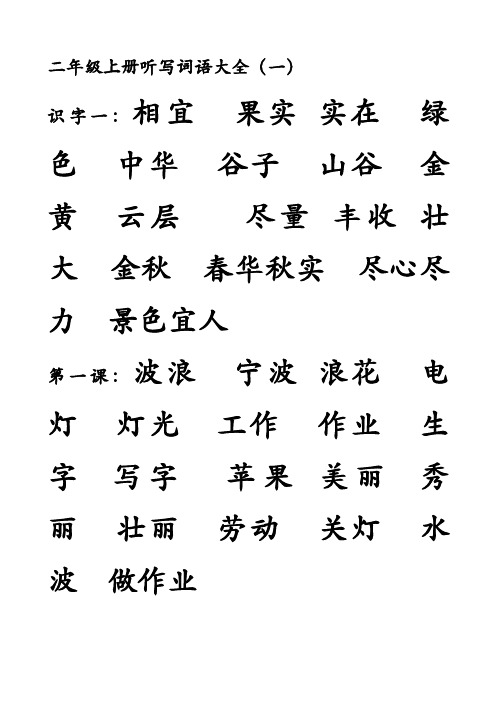 二年级上册听写词语大全（一）
识字一：相宜 果实 实在 绿
色 中华 谷子 山谷 金
黄 云层 尽量 丰收 壮
大 金秋 春华秋实 尽心尽
力 景色宜人
第一课：波浪 宁波 浪花 电
灯 灯光 工作 作业 生
字 写字 苹果 美丽 秀
丽 壮丽 劳动 关灯 水
波 做作业